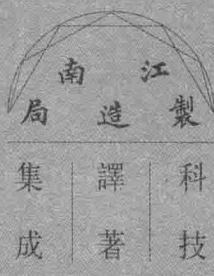 江南製造局
科技
譯著
集成